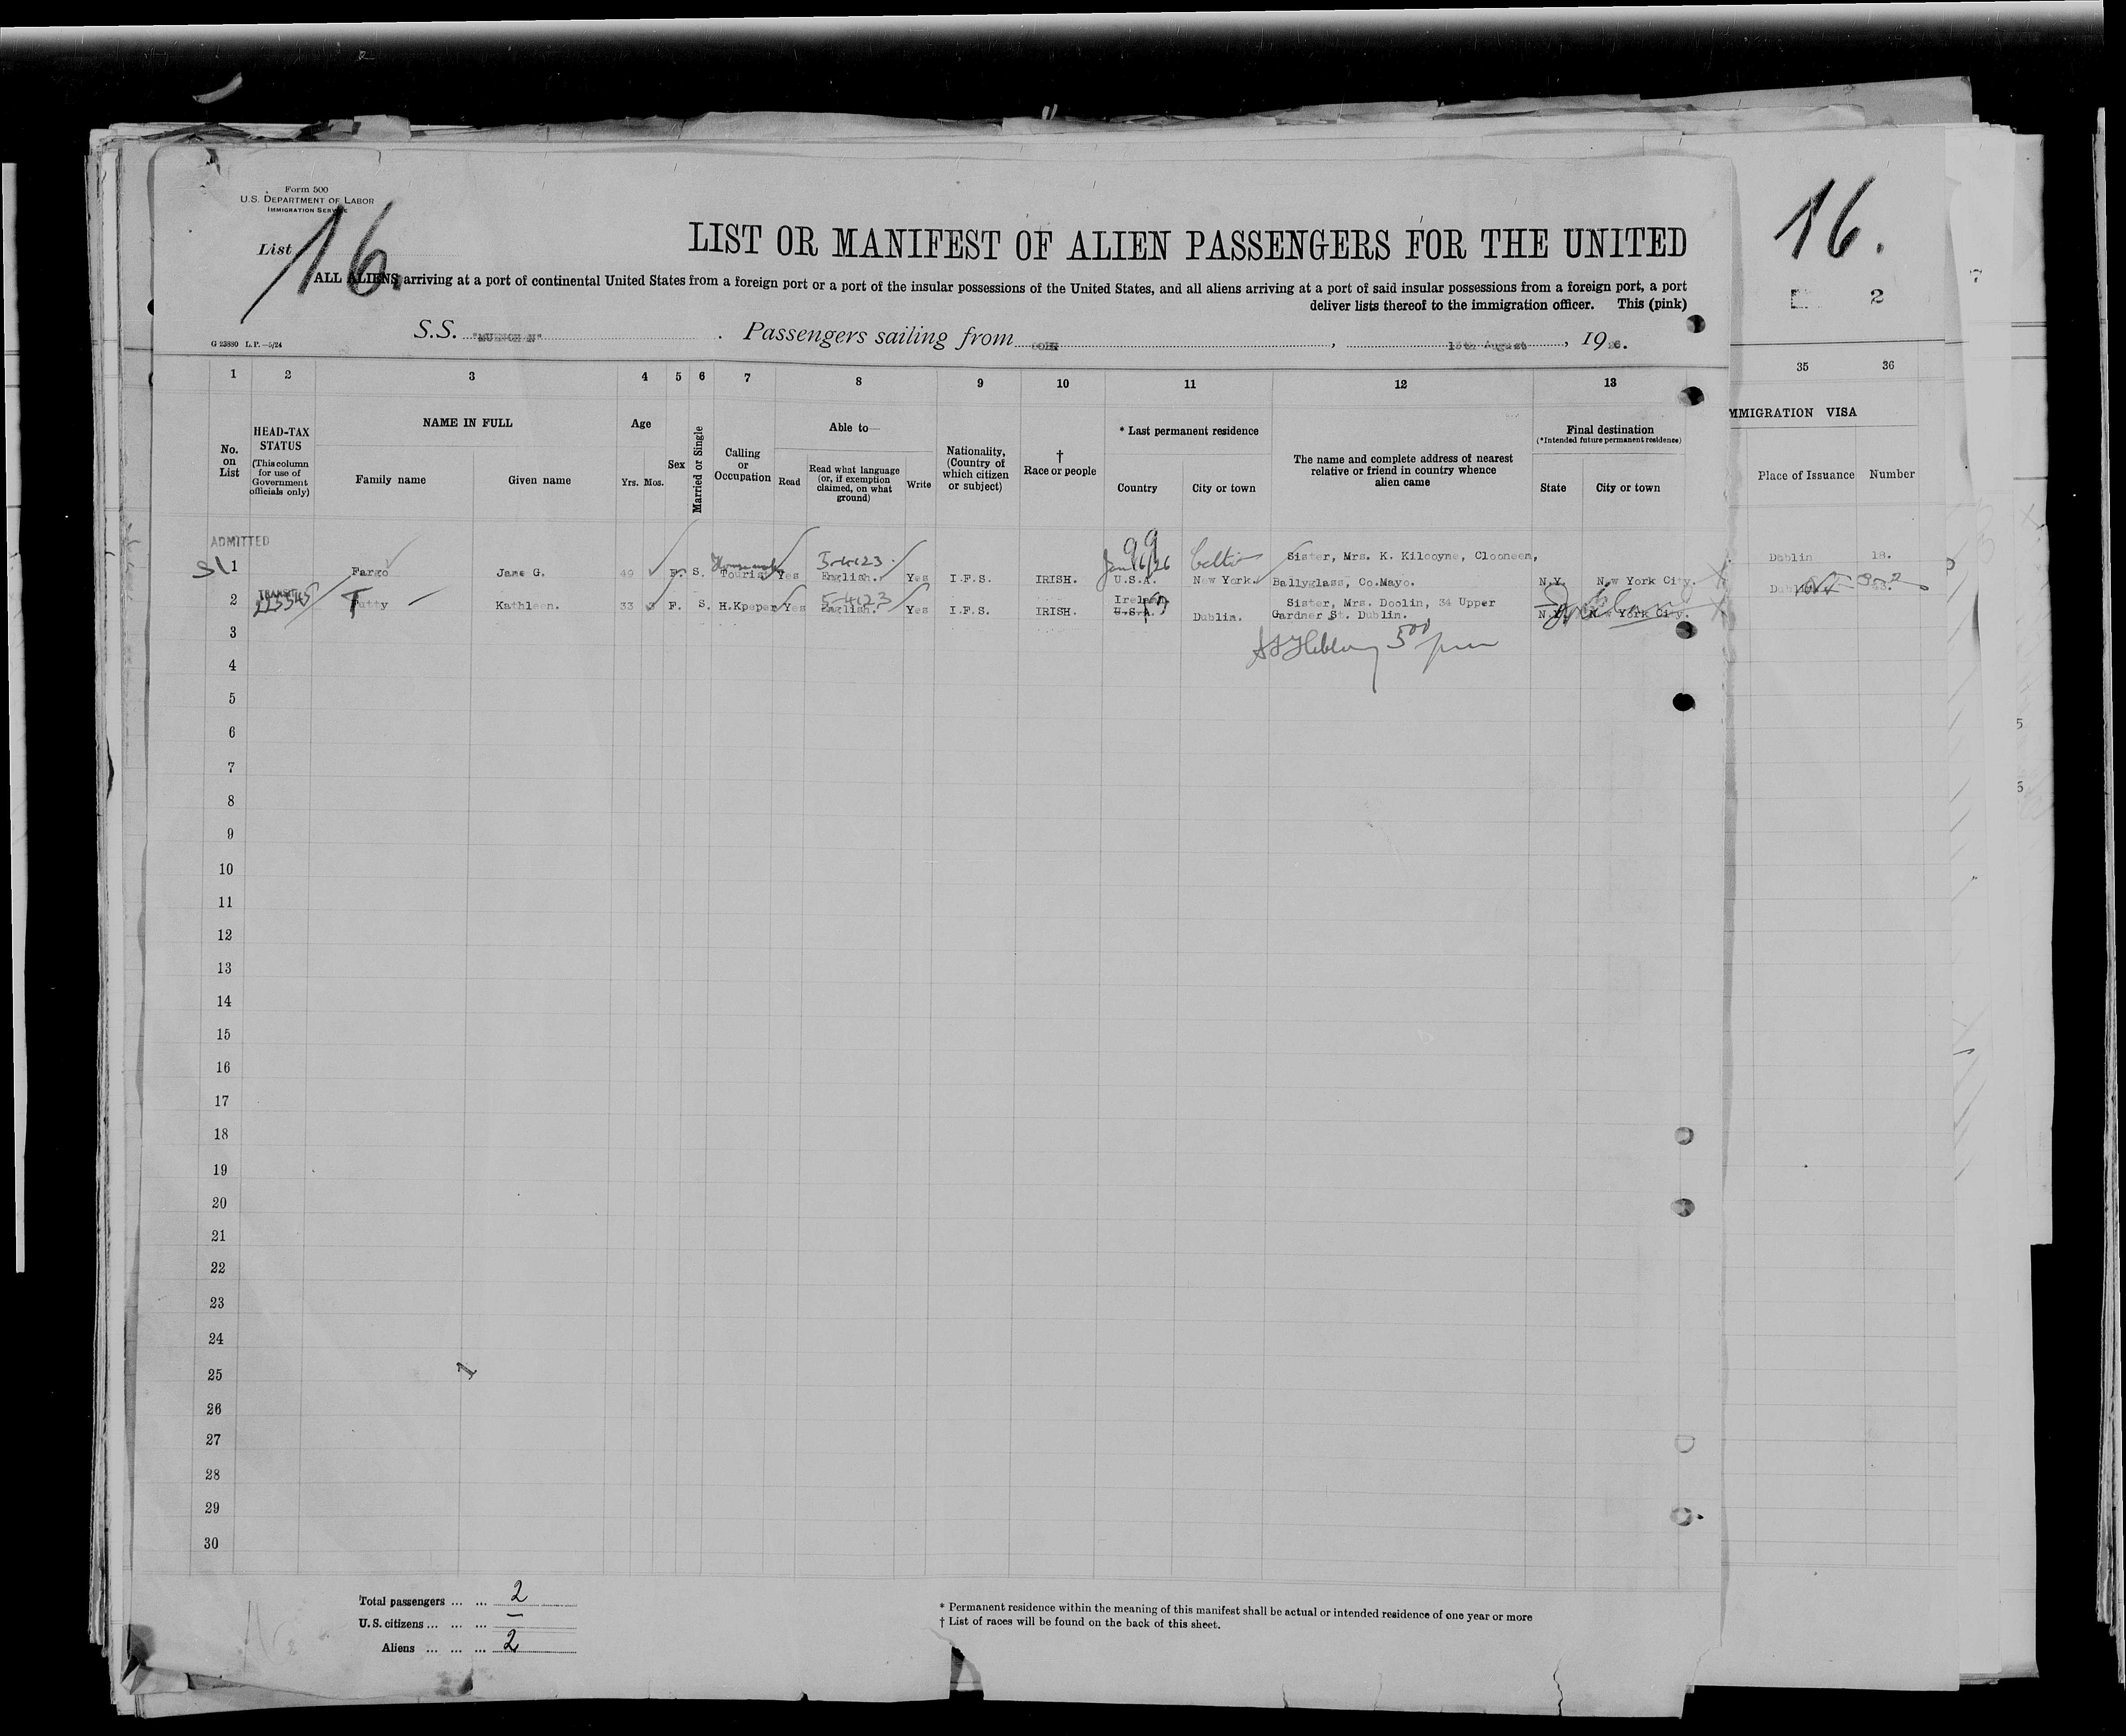 Form 500
U.S. DEPARTMENT OF LABOR
IMMIGRATION SERVICE
List 16.
16.
2
LIST OR MANIFEST OF ALIEN PASSENGERS FOR THE UNITED
ALL ALIENS arriving at a port of continental United States from a foreign port or a port of the insular possessions of the United States, and all aliens arriving at a port of said insular possessions from a foreign port, a port
deliver lists thereof to the immigration officer. This (pink)
S.S. "MUENCHEN" Passengers sailing from COBH, 15th August, 1926.
G 23880 L.P.—5/24
1 2 3 4 5 6 7 8 9 10 11 12 13 35 36
No. on List
HEAD-TAX STATUS
(This column for use of Government officials only)
NAME IN FULL
Family name
Given name
Age
Yrs. Mos.
Sex
Married or Single
Calling or Occupation
Able to—
Read
Read what language (or, if exemption claimed, on what ground)
Write
Nationality, (Country of which citizen or subject)
† Race or people
* Last permanent residence
Country
City or town
The name and complete address of nearest relative or friend in country whence alien came
Final destination
(*Intended future permanent residence)
State
City or town
IMMIGRATION VISA
Place of Issuance
Number
ADMITTED
1 Fargo Jane G. 49 F. S. Tourist Yes 5-4123 English. Yes I.F.S. IRISH. U.S.A. New York. Sister, Mrs. K. Kilcoyne, Clooneen, Ballyglass, Co.Mayo. N.Y. New York City. Dublin 18.
2 TRANSIT Tutty Kathleen. 33 F. S. H.Kpeper Yes 5-4123 English. Yes I.F.S. IRISH. Ireland U.S.A. Dublin. Sister, Mrs. Doolin, 34 Upper Gardner St. Dublin. N.Y. New York City. Dublin
3
4
5
6
7
8
9
10
11
12
13
14
15
16
17
18
19
20
21
22
23
24
25
26
27
28
29
30
Total passengers ... ... 2
U.S. citizens ... ... ... —
Aliens ... ... ... 2
* Permanent residence within the meaning of this manifest shall be actual or intended residence of one year or more
† List of races will be found on the back of this sheet.